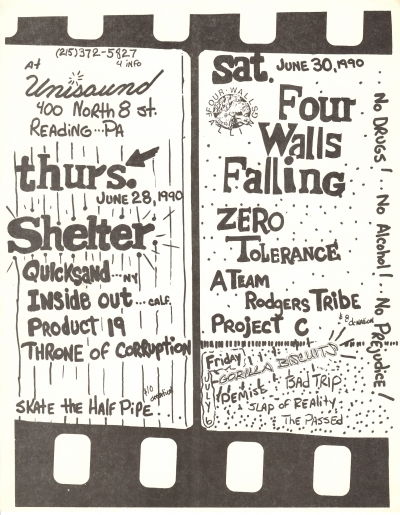 (215)372-5827
4 info
At
Unisound
400 North 8 St.
Reading...PA
thurs.
June 28, 1990
Shelter
Quicksand...NY
Inside out...Calf.
Product 19
Throne of Corruption
$10 donation
Skate the Half Pipe
Sat. June 30, 1990
Four Walls
Four
Walls
Falling
Zero
Tolerance
A Team
Rodgers Tribe
Project C
$8 donation
No Drugs! No Alcohol! No Prejudice!
Friday
July 6
Gorilla Biscuits
Demise Bad Trip
Slap of Reality
The Passed